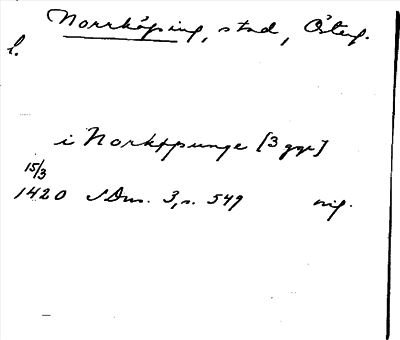 Norrköping, stad, Österg.
l.
i Norkøpunge [3 ggr]
15/3
1420 SDns. 3, s. 549 orig.